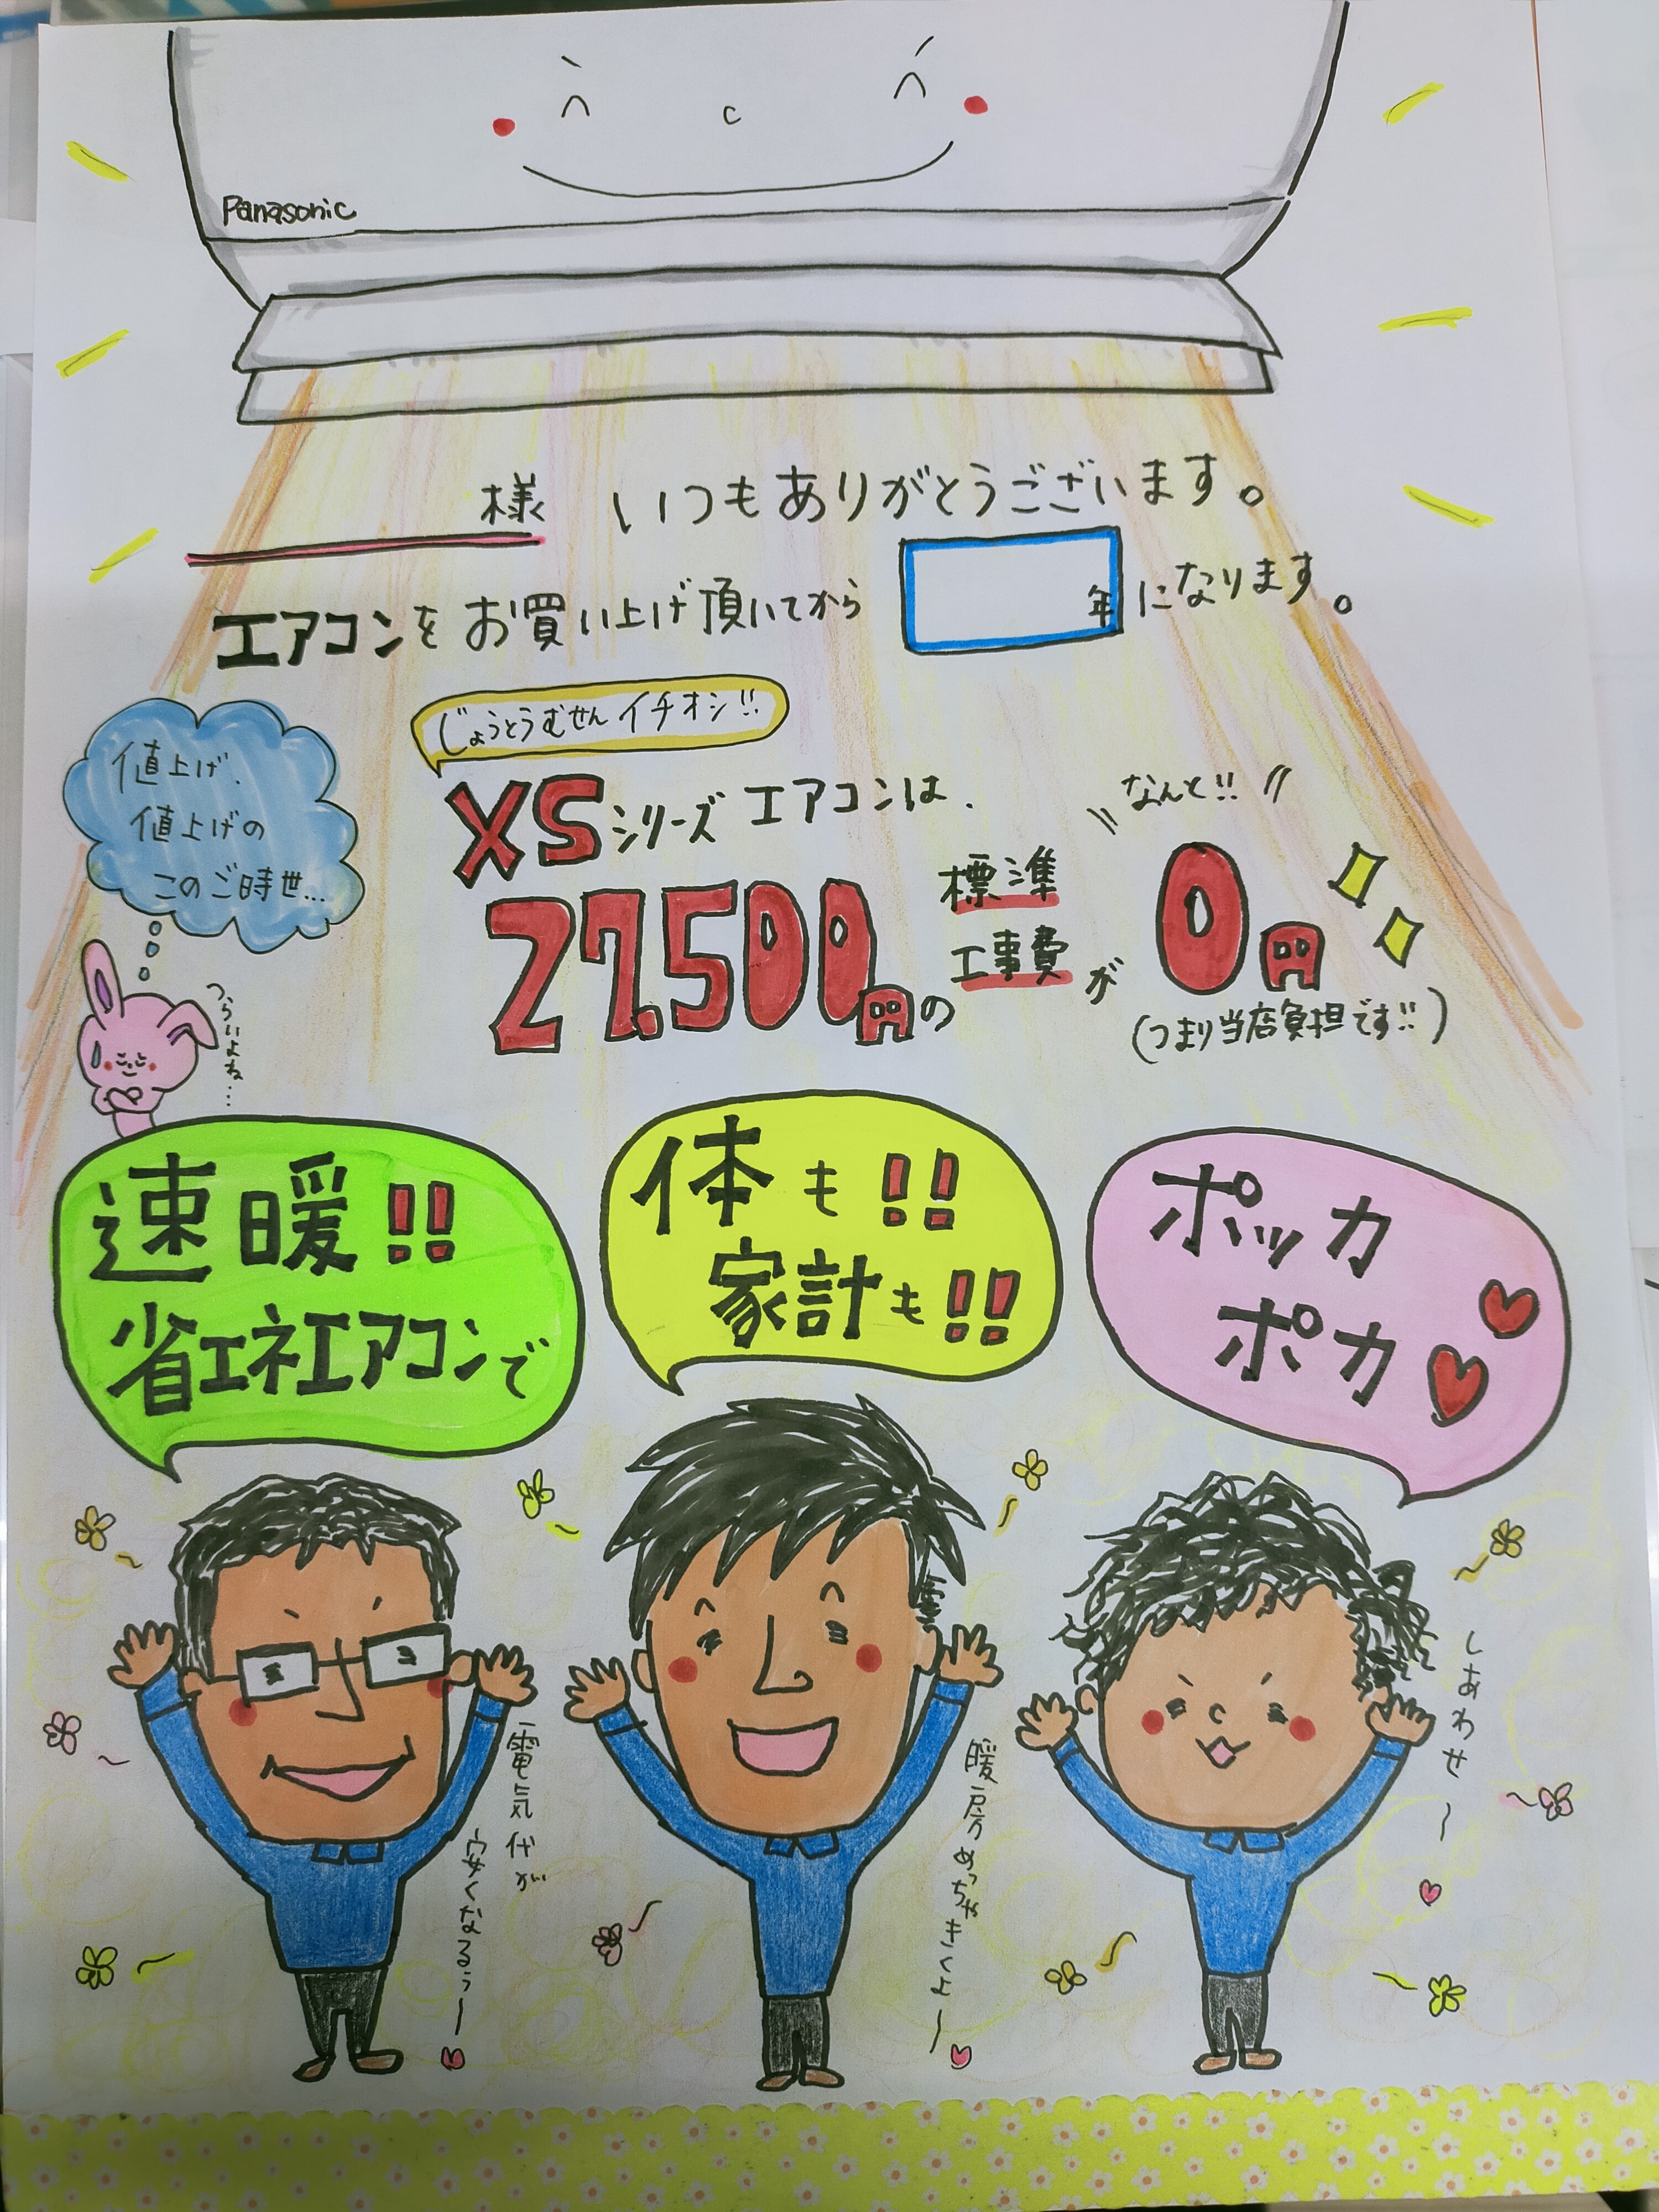 Panasonic
様 いつもありがとうございます。
エアコンをお買い上げ頂いてから 年になります。
じょうとうむせんイチオシ!!
値上げ、
値上げの
このご時世…
つらいよね…
XSシリーズエアコンは、
なんと!!
27,500円の標準工事費が0円
(つまり当店負担です!!)
速暖!!
省エネエアコンで
体も!!
家計も!!
ポッカ
ポカ
電気代が
安くなるぅ〜
暖房めっちゃきくよ〜
しあわせ〜